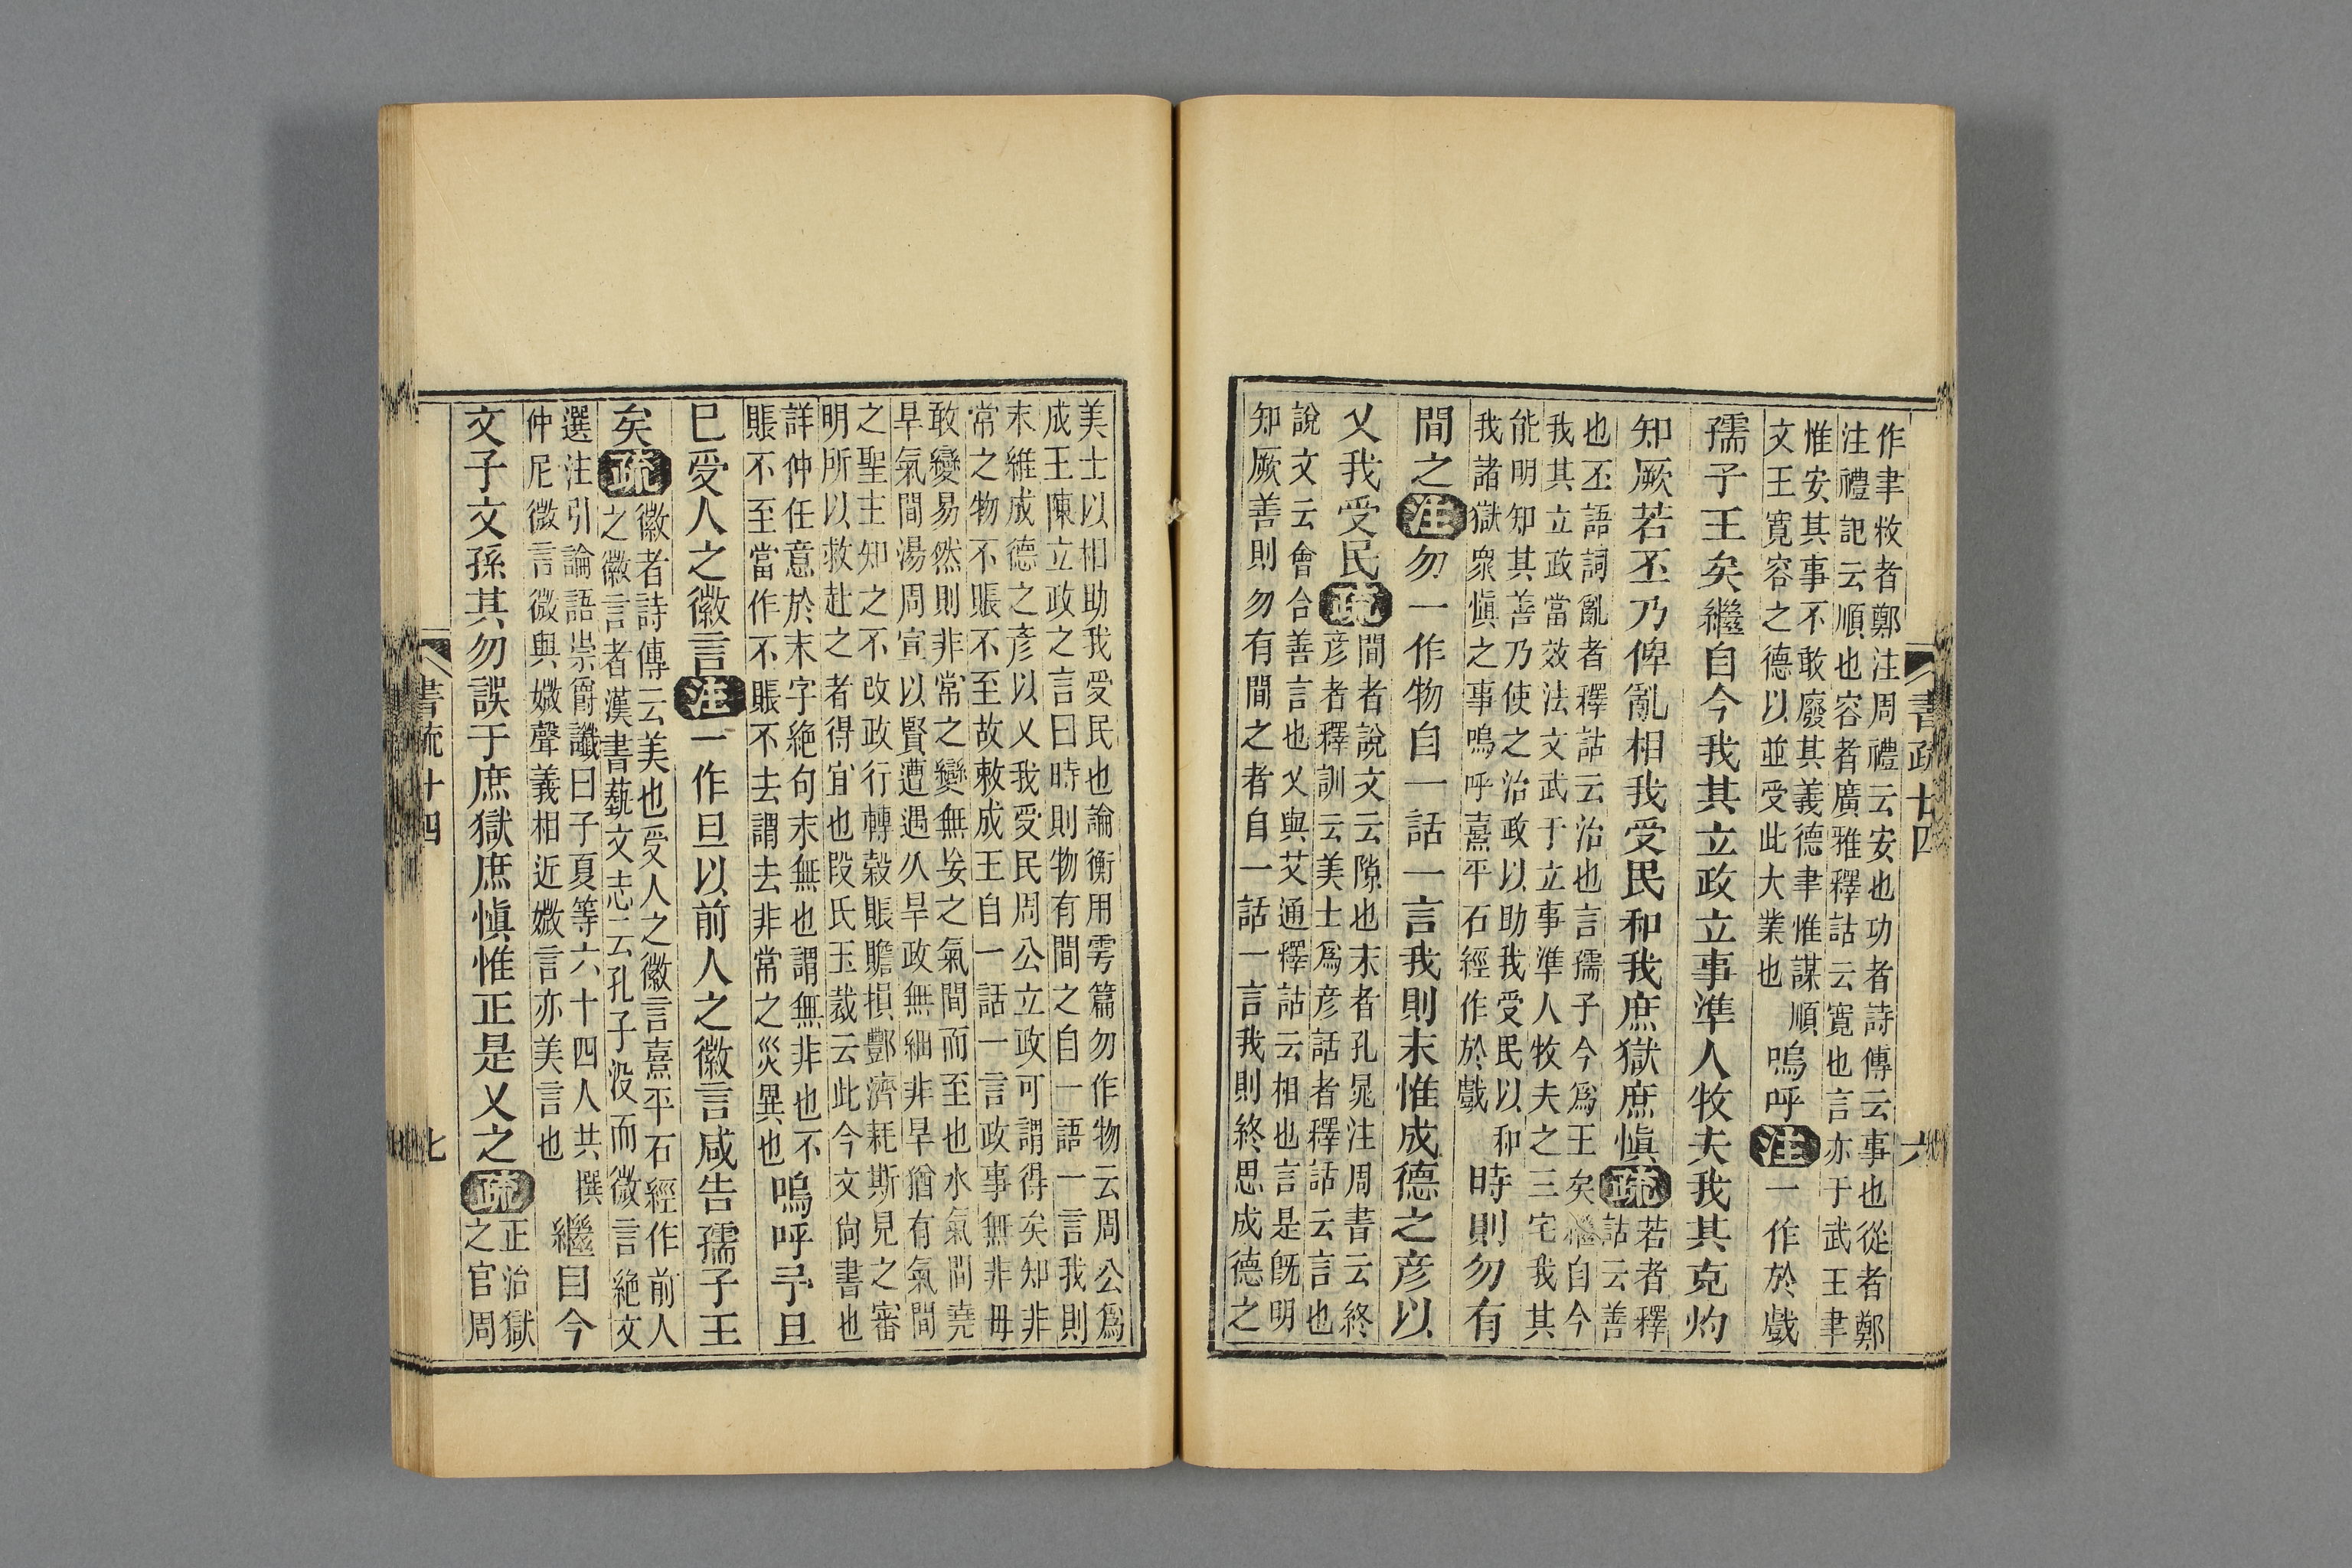 作聿牧者鄭注周禮云安也功者詩傳云事也從者鄭
注禮記云順也容者廣雅釋詁云寬也言亦于武王聿
惟安其事不敢廢其義德聿惟謀順
文王寬容之德以並受此大業也
嗚呼注一作於戲
孺子王矣繼自今我其立政立事準人牧夫我其克灼
知厥若丕乃俾亂相我受民和我庶獄庶慎疏
若者釋
詁云善
也丕語詞亂者釋詁云治也言孺子今爲王矣繼自今
我其立政當效法文武于立事準人牧夫之三宅我其
能明知其善乃使之治政以助我受民以和
我諸獄衆慎之事嗚呼熹平石經作於戲
時則勿有
間之注勿一作物自一話一言我則末惟成德之彥以
乂我受民疏
間者說文云隙也末者孔晁注周書云終
彥者釋訓云美士爲彥話者釋詁云言也
說文云會合善言也乂與艾通釋詁云相也言是旣明
知厥善則勿有間之者自一話一言我則終思成德之
書疏廿四
六
美士以相助我受民也論衡用雩篇勿作物云周公爲
成王陳立政之言曰時則物有間之自一語一言我則
末維成德之彥以乂我受民周公立政可謂得矣知非
常之物不賑不至故敕成王自一話一言政事無非毋
敢變易然則非常之變無妄之氣間而至也水氣間堯
旱氣間湯周宣以賢遭遇久旱政無細非旱猶有氣間
之聖主知之不改政行轉穀賑贍損酆濟耗斯見之審
明所以救赴之者得宜也段氏玉裁云此今文尙書也
詳仲任意於末字絶句末無也謂無非也不
賑不至當作不賑不去謂去非常之災異也
嗚呼予旦
巳受人之徽言注一作旦以前人之徽言咸告孺子王
矣疏
徽者詩傳云美也受人之徽言熹平石經作前人
之徽言者漢書藝文志云孔子没而微言絶文
選注引論語崇爵讖曰子夏等六十四人共撰
仲尼微言微與媺聲義相近媺言亦美言也
繼自今
文子文孫其勿誤于庶獄庶慎惟正是乂之疏
正治獄
之官周
書疏廿四
七